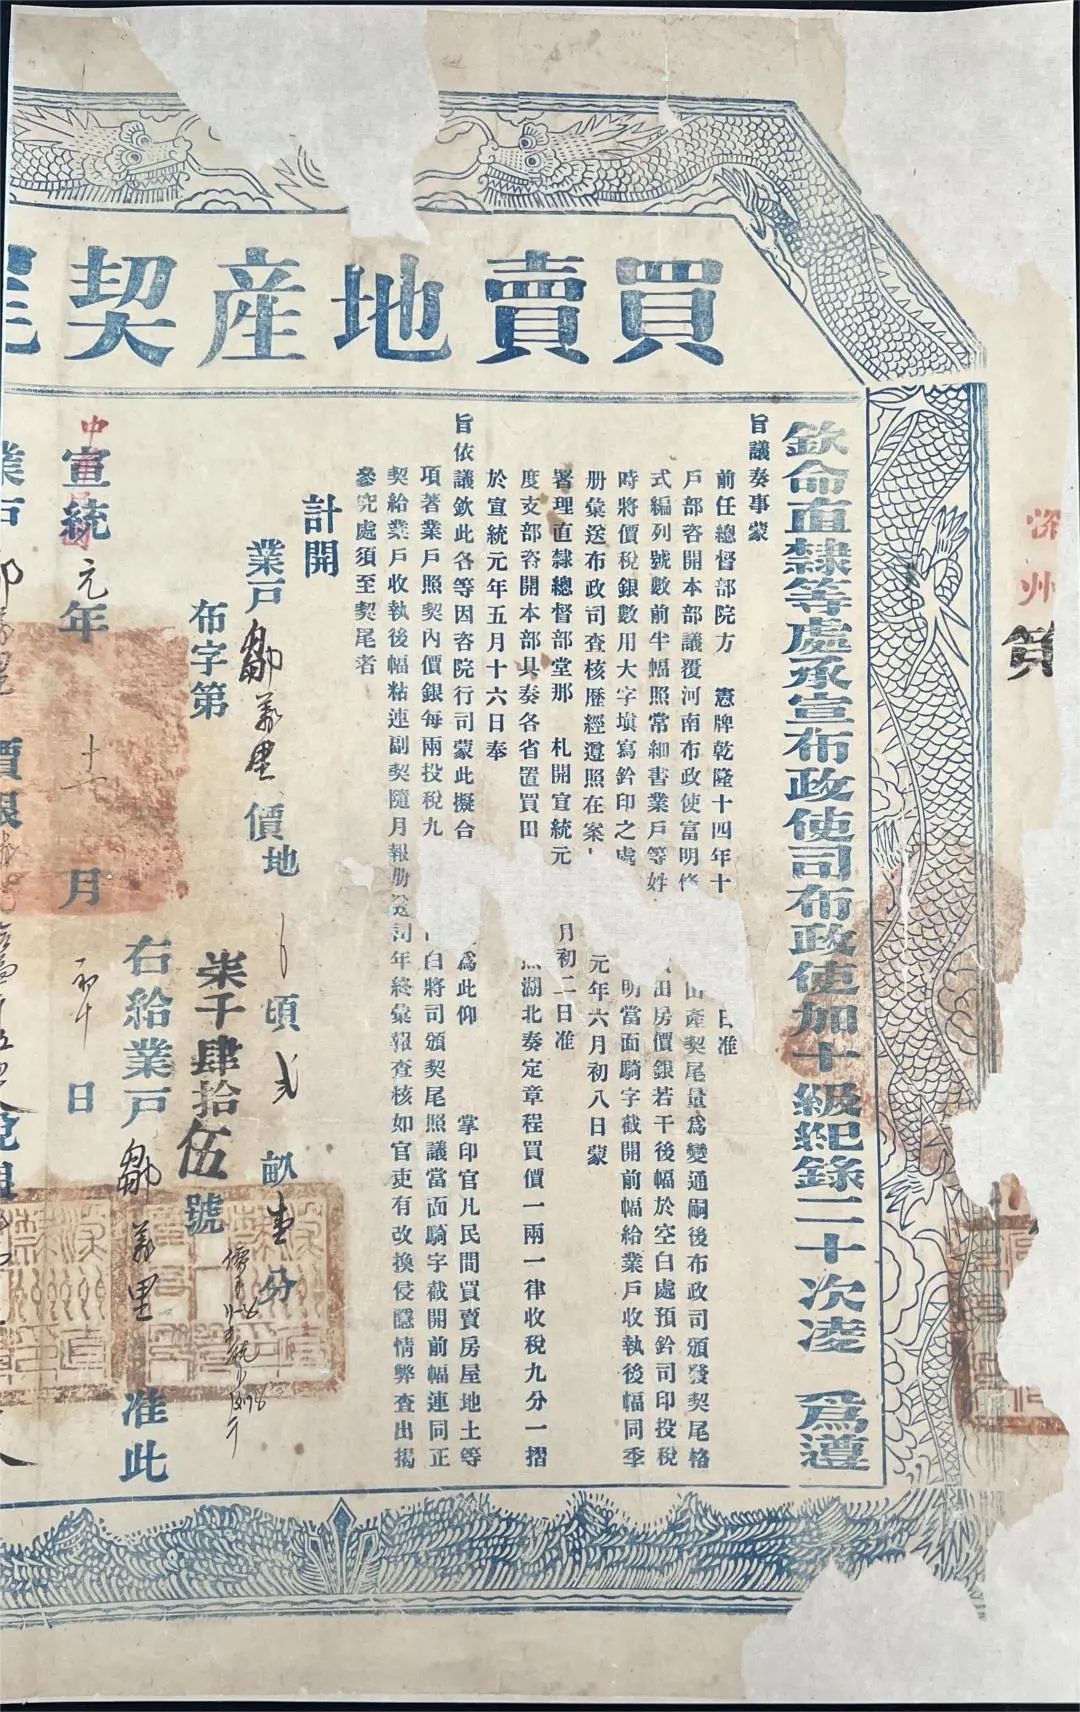 買賣地產契尾
深州
欽命直隸等處承宣布政使司布政使加十級紀錄二十次凌 爲遵
旨議奏事蒙
前任總督部院方 憲牌乾隆十四年十 日准
戶部咨開本部議覆河南布政使富明條 田產契尾量爲變通嗣後布政司頒發契尾格
式編列號數前半幅照常細書業戶等姓 田房價銀若干後幅於空白處預鈐司印投稅
時將價稅銀數用大字塡寫鈐印之處 明當面騎字截開前幅給業戶收執後幅同季
册彙送布政司查核歷經遵照在案 元年六月初八日蒙
署理直隸總督部堂那 札開宣統元 月初二日准
度支部咨開本部具奏各省置買田 照湖北奏定章程買價一兩一律收稅九分一摺
於宣統元年五月十六日奉
旨依議欽此各等因咨院行司蒙此擬合 爲此仰 掌印官凡民間買賣房屋地土等
項著業戶照契內價銀每兩投稅九 白將司頒契尾照議當面騎字截開前幅連同正
契給業戶收執後幅粘連副契隨月報册 司年終彙報查核如官吏有改換侵隱情弊查出揭
參究處須至契尾者
計開
業戶鄒義里 價地 頃弍畝壹分
布字第 柒千肆拾伍號
右給業戶鄒義里 准此
宣統元年十弍月初十日
業戶 價銀